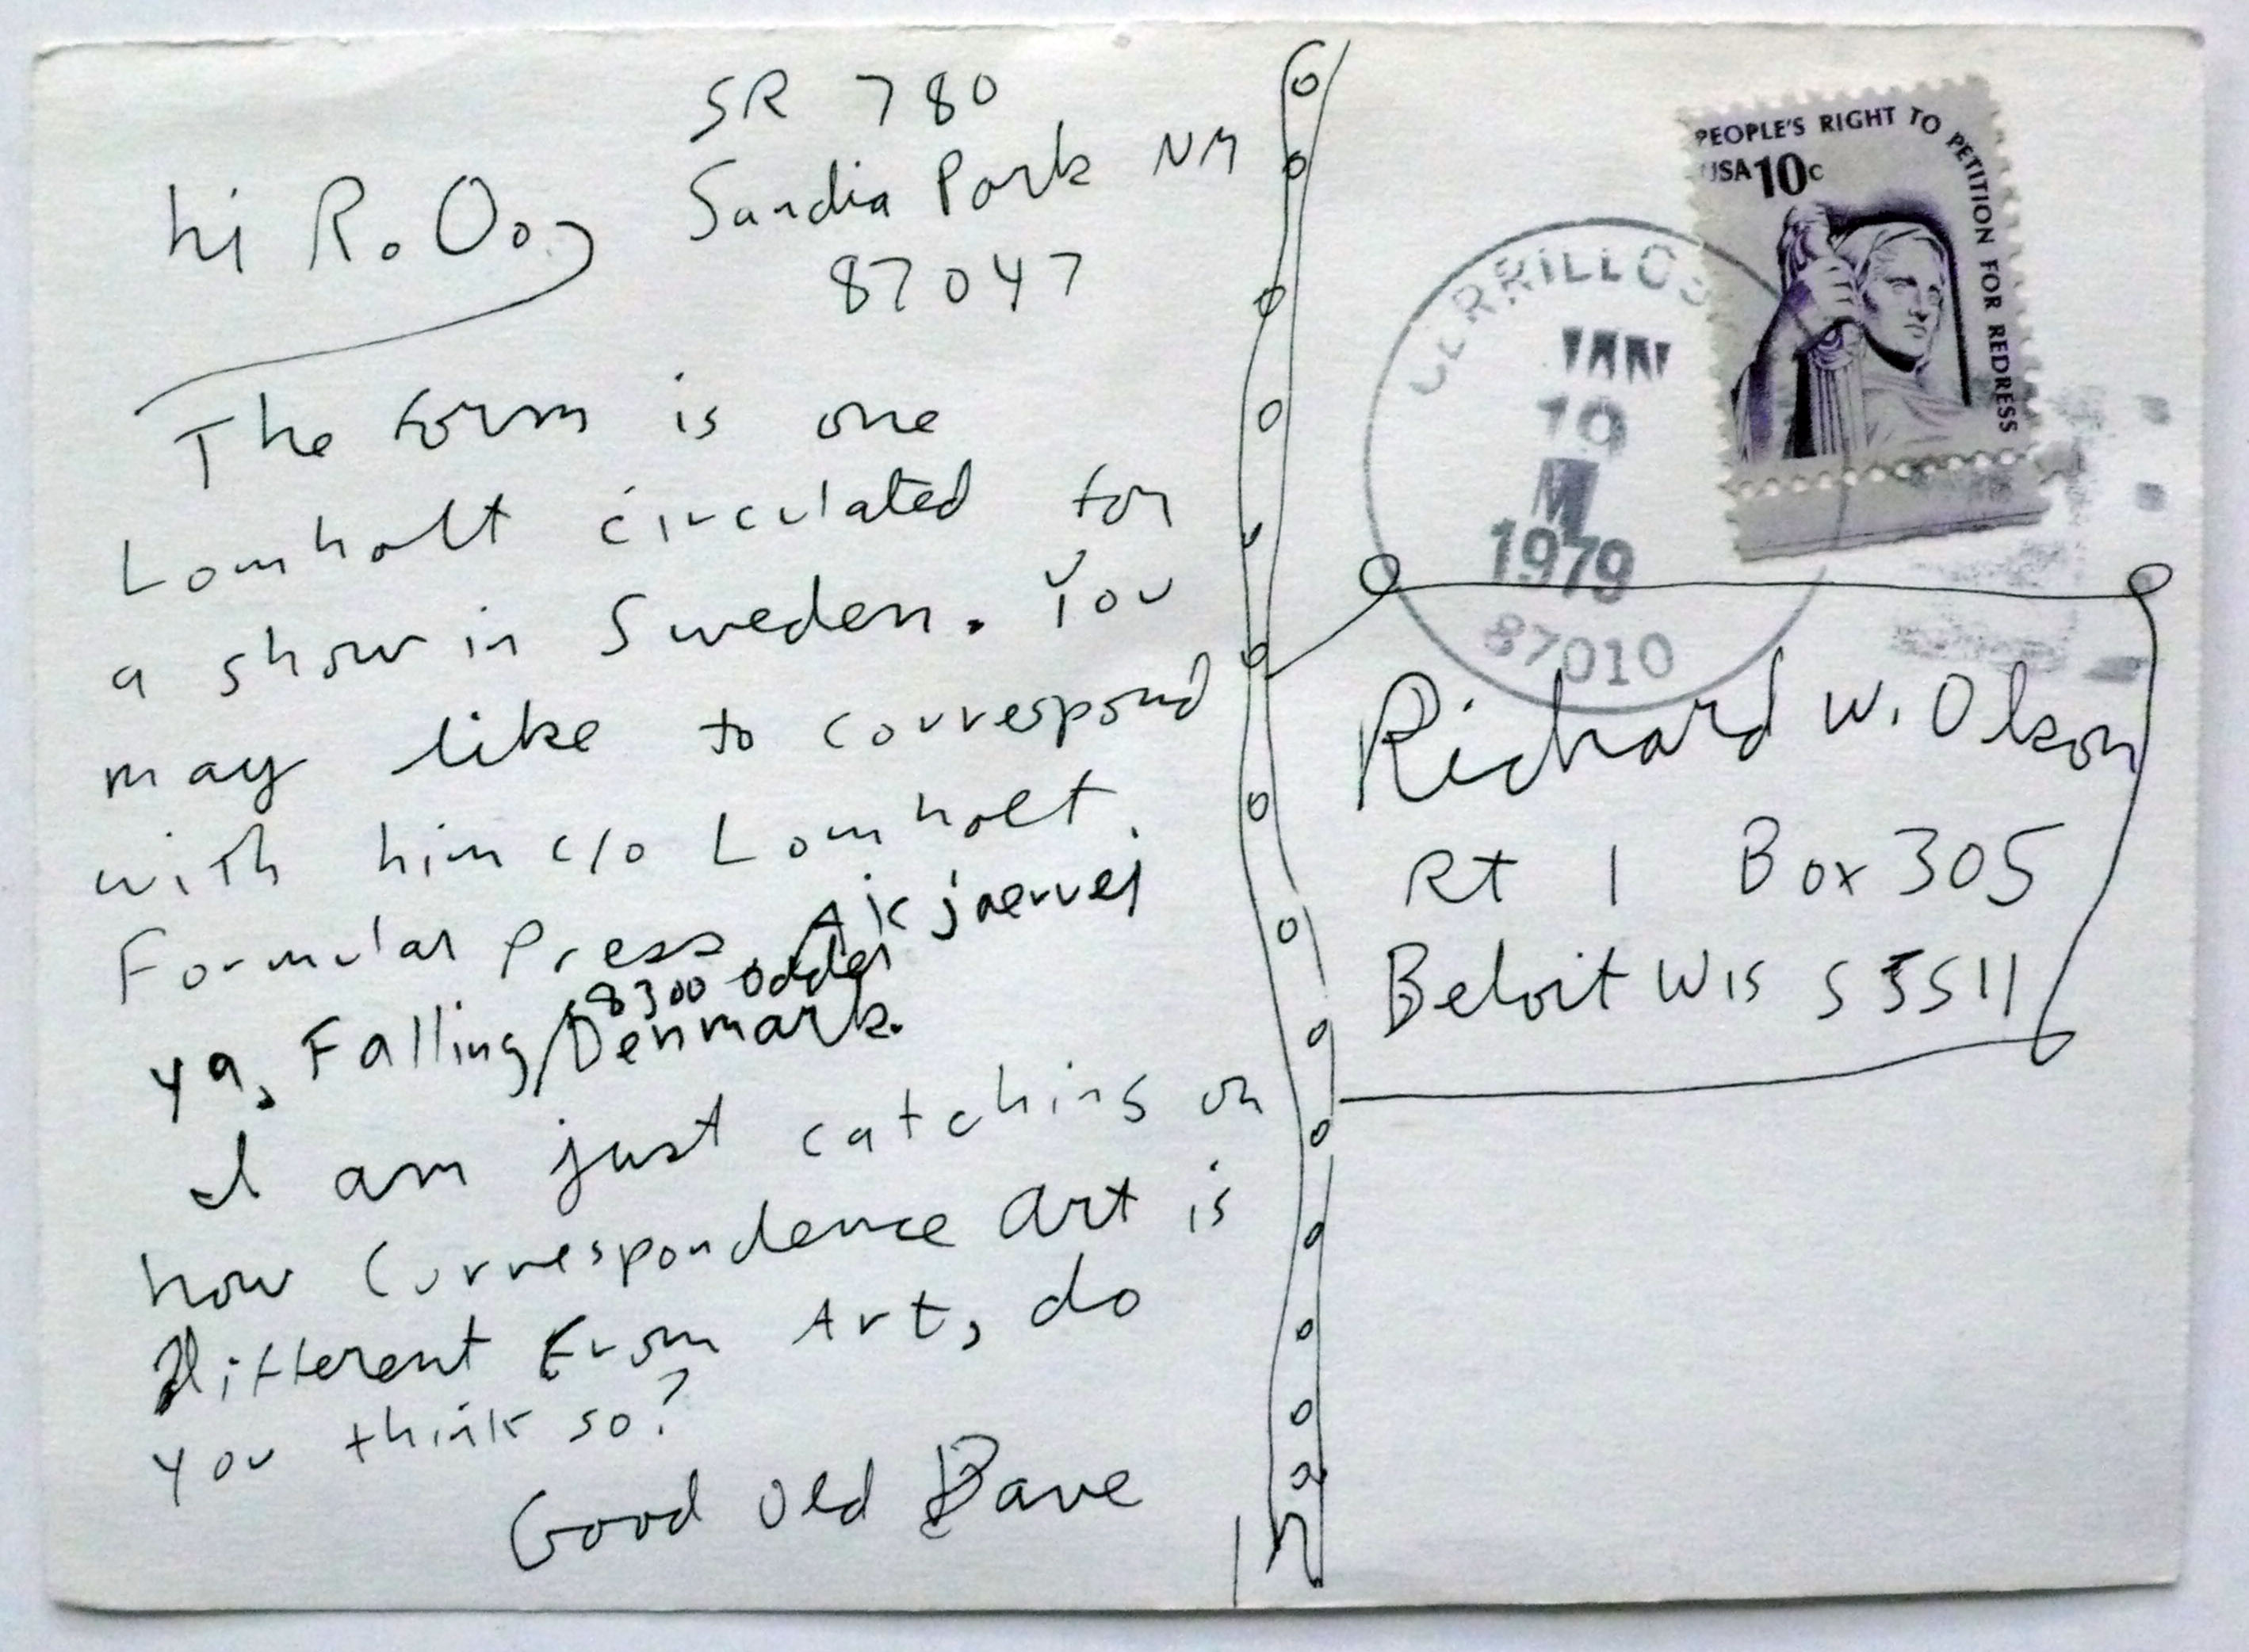 SR 780
Sandia Park NM
87047
hi R. O.,
The form is one
Lomholt circulated for
a show in Sweden. You
may like to correspond
with him c/o Lomholt
Formular Press, Akjaervej
ya, Falling, 8300 Odder
Denmark.
I am just catching on
how Correspondence Art is
different from Art, do
you think so?
Good old Dave
PEOPLE'S RIGHT TO PETITION FOR REDRESS
USA 10c
CERRILLOS
JAN
19
M
1979
87010
Richard W. Olson
Rt 1 Box 305
Beloit Wis 53511